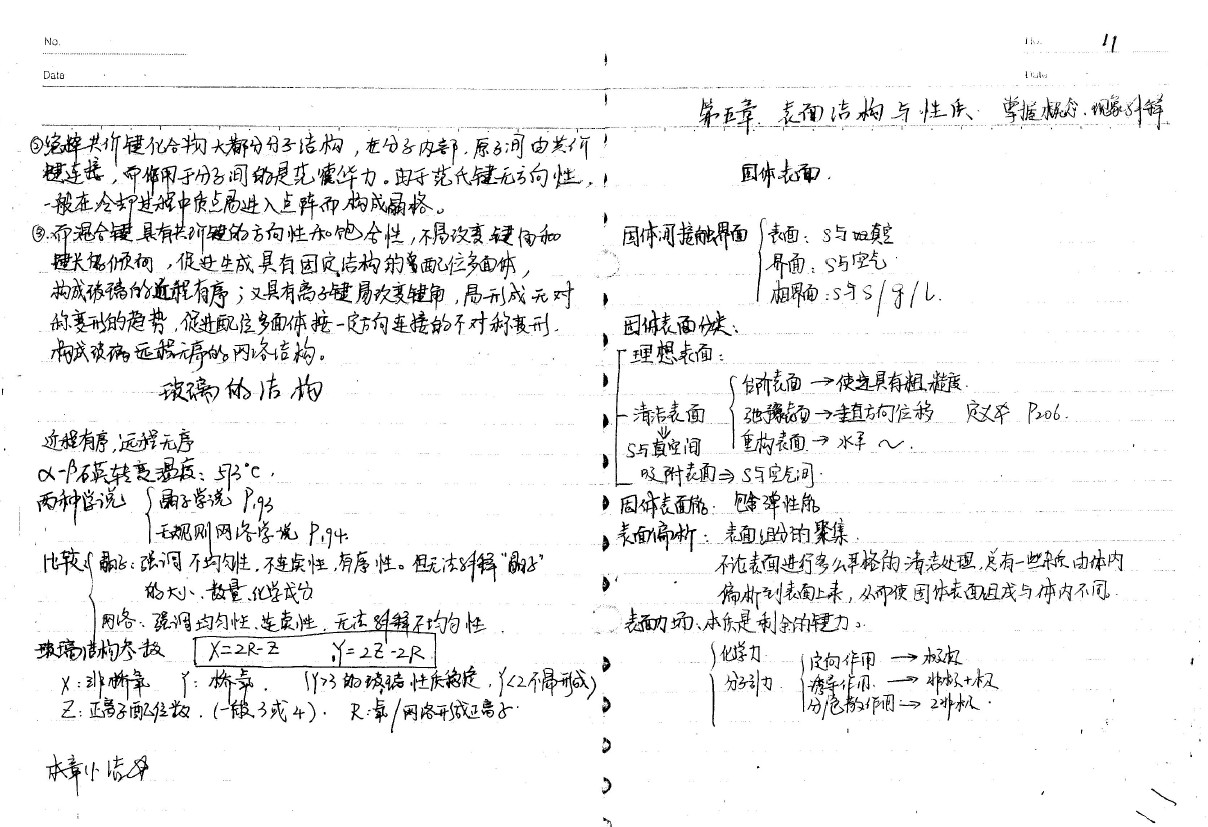 No.
Date
②纯粹共价键化合物大都分分子结构，在分子内部，原子间由共价
键连接，而作用于分子间的是范德华力。由于范氏键无方向性，
一般在冷却过程中质点易进入点阵而构成晶格。
③而混合键具有共价键的方向性和饱合性，不易改变键角和
键长的倾向，促进生成具有固定结构的配位多面体，
构成玻璃的近程有序；又具有离子键易改变键角，易形成无对
称变形的趋势，促进配位多面体按一定方向连接的不对称变形．
构成玻璃远程无序的网络结构。
玻璃的结构
近程有序，远程无序
α-β石英转变温度：573℃．
两种学说 { 晶子学说 P.193
无规则网络学说 P.194.
比较 { 晶子：强调不均匀性，不连续性，有序性。但无法解释“晶子”
的大小、数量、化学成分
网络：强调均匀性、连续性，无法解释不均匀性
玻璃结构参数 X=2R-Z Y=2Z-2R
X：非桥氧 Y：桥氧． (Y>3的玻璃性质稳定，Y<2不易形成)
Z：正离子配位数．(一般3或4)． R：氧/网络形成正离子．
本章小结
No. 11
Date
第五章．表面结构与性质． 掌握概念、现象解释
固体表面．
固体间接触界面 { 表面：S与真空
界面：S与空气
相界面：S与S/g/L．
固体表面分类：
理想表面：
台阶表面→使之具有粗糙度．
清洁表面 弛豫表面→垂直方向位移 定义 P206．
S与真空间 重构表面→水平～．
吸附表面⇒S与空气间．
固体表面能：包含弹性能
表面偏析：表面组分的聚集
不论表面进行多么严格的清洁处理，总有一些杂质由体内
偏析到表面上来，从而使固体表面组成与体内不同．
表面力场：本质是剩余的键力。
化学力 定向作用→极极
分子引力 诱导作用→非极+极
分/色散作用→2非极．